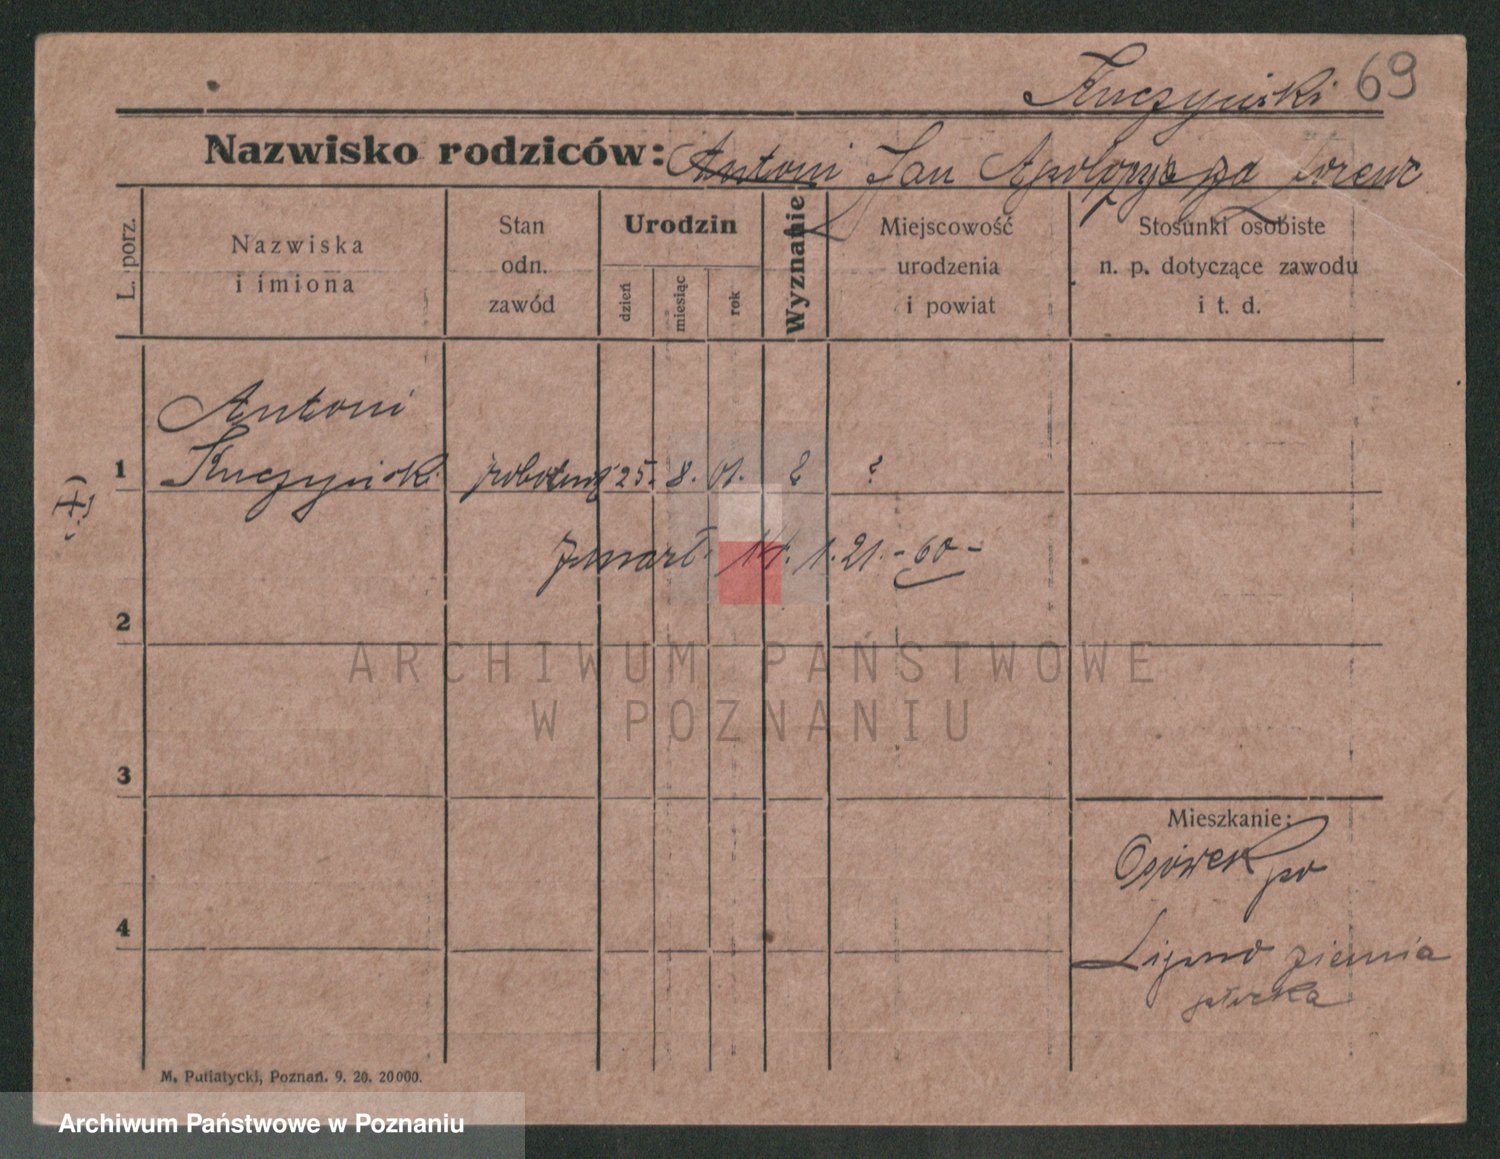 Kuczyński 69
Nazwisko rodziców: Antoni Jan Apolonja Lorenc
L. porz.
Nazwiska
i imiona
Stan
odn.
zawód
Urodzin
dzień
miesiąc
rok
Wyznanie
Miejscowość
urodzenia
i powiat
Stosunki osobiste
n. p. dotyczące zawodu
i t. d.
Antoni
1 Kuczyński robotnik 25. 8. 01. ? ?
zmarł 14. 1. 21. - 60 -
2
ARCHIWUM PAŃSTWOWE
W POZNANIU
3
Mieszkanie:
Osówek po
4
Lipno ziemia
płocka
M. Putiatycki, Poznań. 9. 20. 20000.
Archiwum Państwowe w Poznaniu